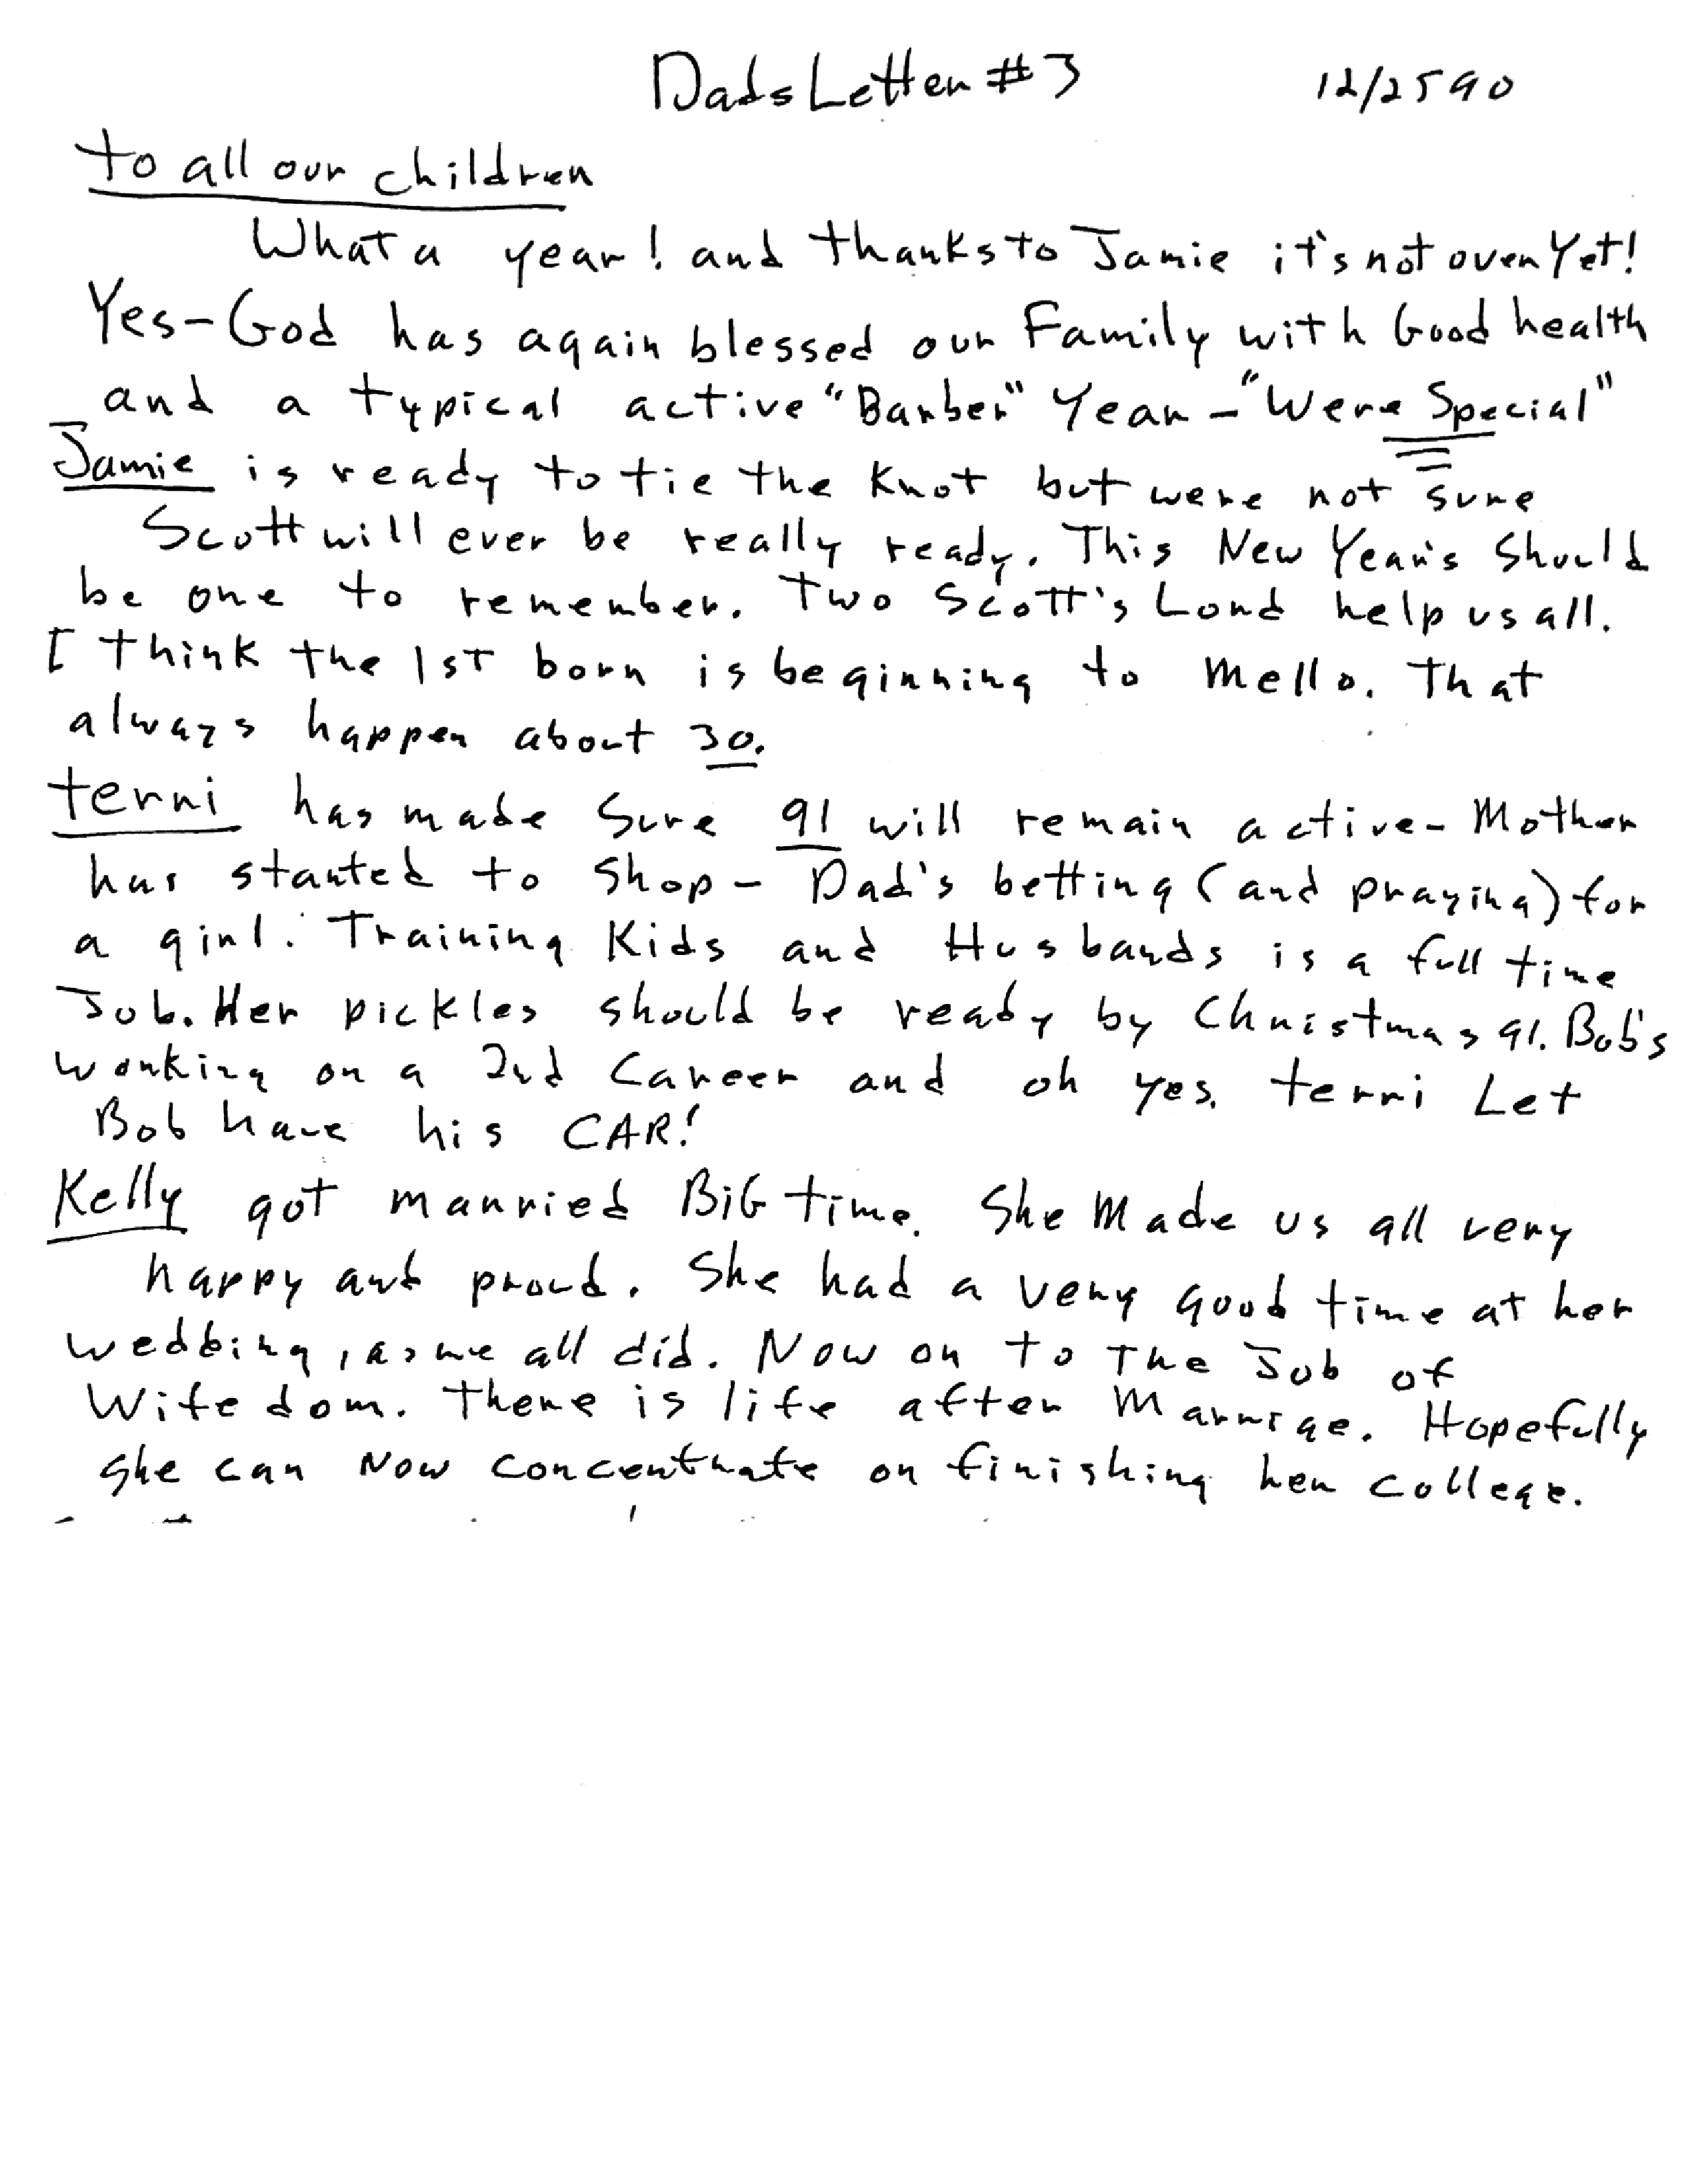 Dads Letter #3 12/25 90
to all our children
What a year! and thanks to Jamie it's not over Yet!
Yes-God has again blessed our Family with Good health
and a typical active "Barber" Year - "Were Special"
Jamie is ready to tie the Knot but were not sure
Scott will ever be really ready. This New Year's Should
be one to remember. Two Scott's Lord help us all.
I think the 1st born is beginning to Mello. That
always happen about 30.
terri has made Sure 91 will remain active- Mother
has started to Shop - Dad's betting (and praying) for
a girl. Training Kids and Husbands is a full time
Job. Her pickles should be ready by Christmas 91. Bob's
working on a 2nd Career and oh yes. terri Let
Bob have his CAR!
Kelly got married BiG time. She Made us all very
happy and proud. She had a very good time at her
wedding, as we all did. Now on to The Job of
Wife dom. There is life after Marrige. Hopefully
she can Now concentrate on finishing her college.